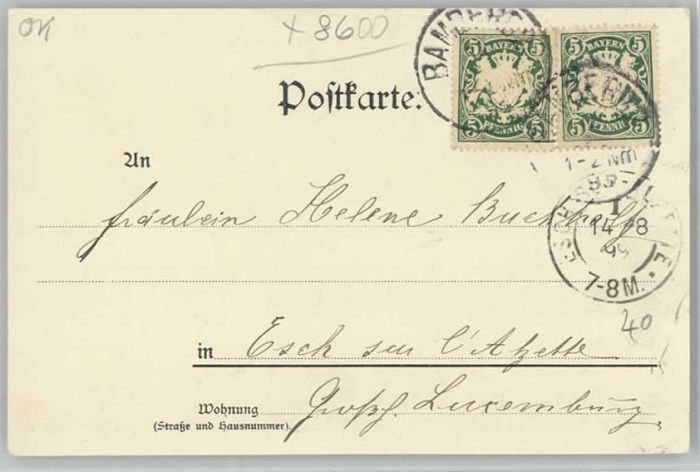 OK
+ 8600
BAMBERG
5 BAYERN 5
5 PFENNIG 5
5 BAYERN 5
5 PFENNIG 5
Postkarte.
1-2 Nm
An
Fräulein Helene Buchholz
14 8
99
7-8M.
40
in Esch sur l'Alzette
Wohnung Großh. Luxemburg.
(Straße und Hausnummer)